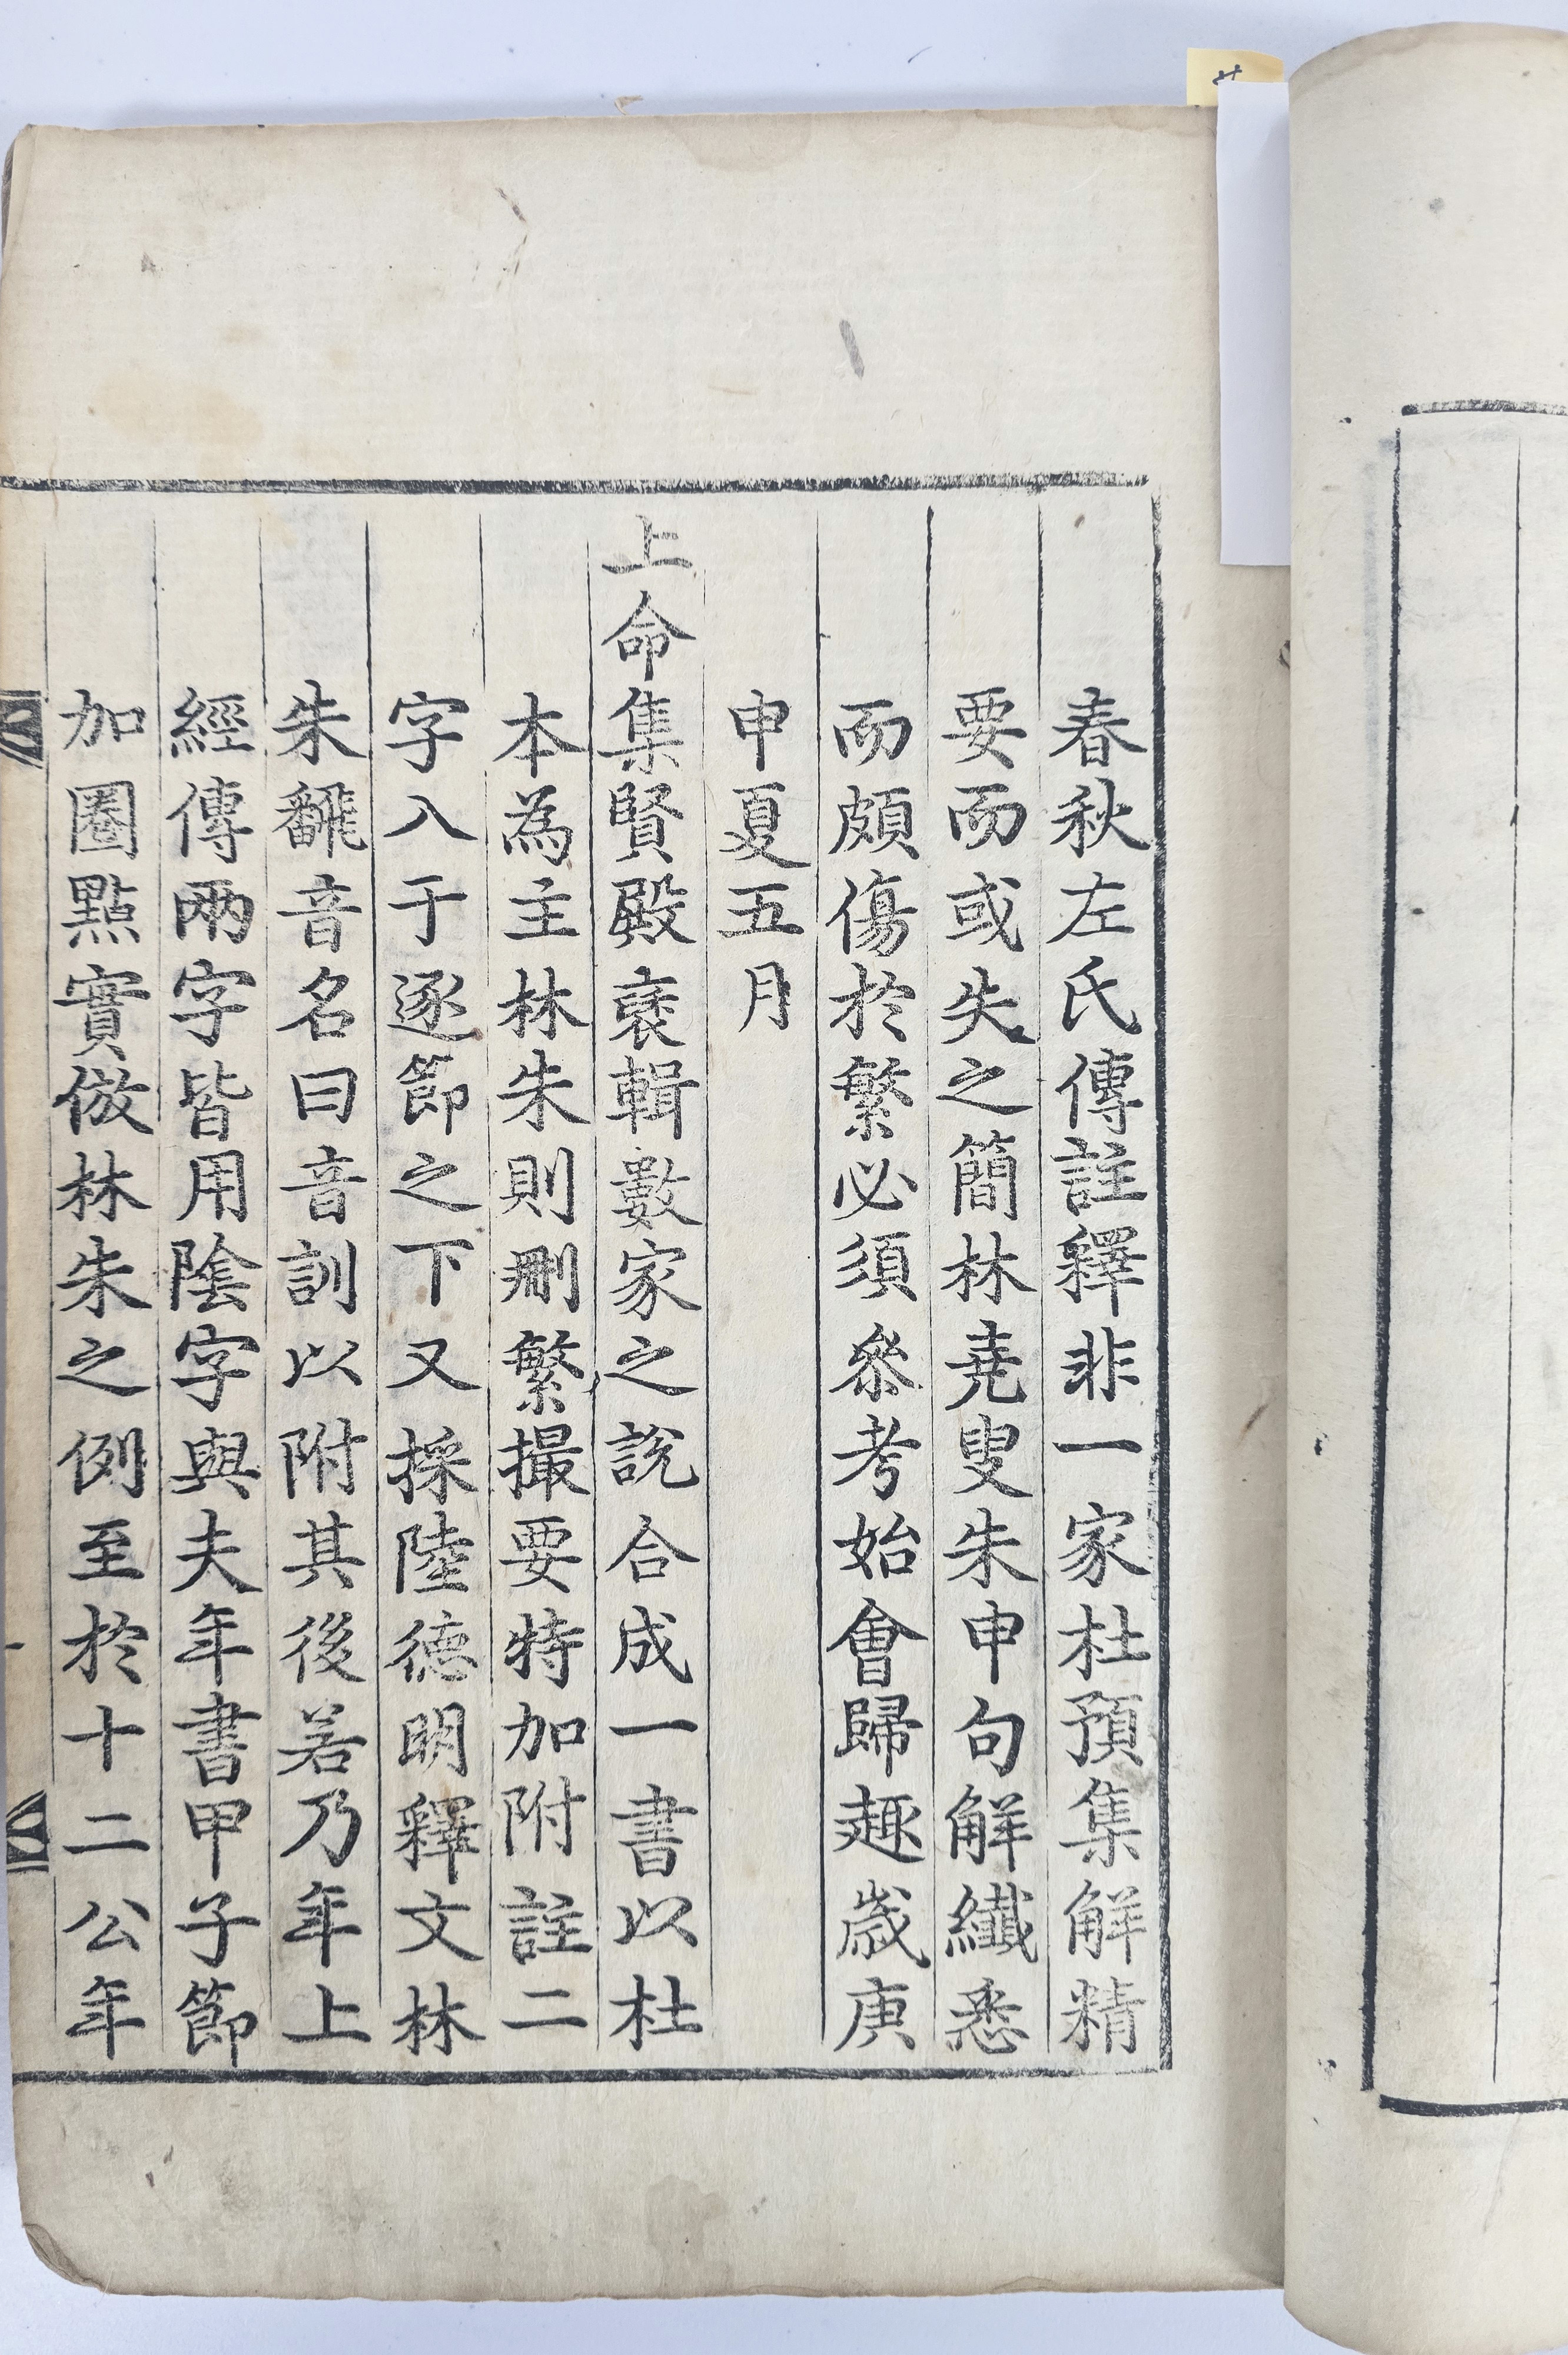 春秋左氏傳註釋非一家杜預集解精
要而或失之簡林堯叟朱申句解纖悉
而頗傷於繁必須叅考始會歸趣歲庚
申夏五月
上命集賢殿裒輯數家之說合成一書以杜
本為主林朱則刪繁撮要特加附註二
字入于逐節之下又採陸德明釋文林
朱飜音名曰音訓以附其後若乃年上
經傳兩字皆用陰字與夫年書甲子節
加圈點實倣林朱之例至於十二公年